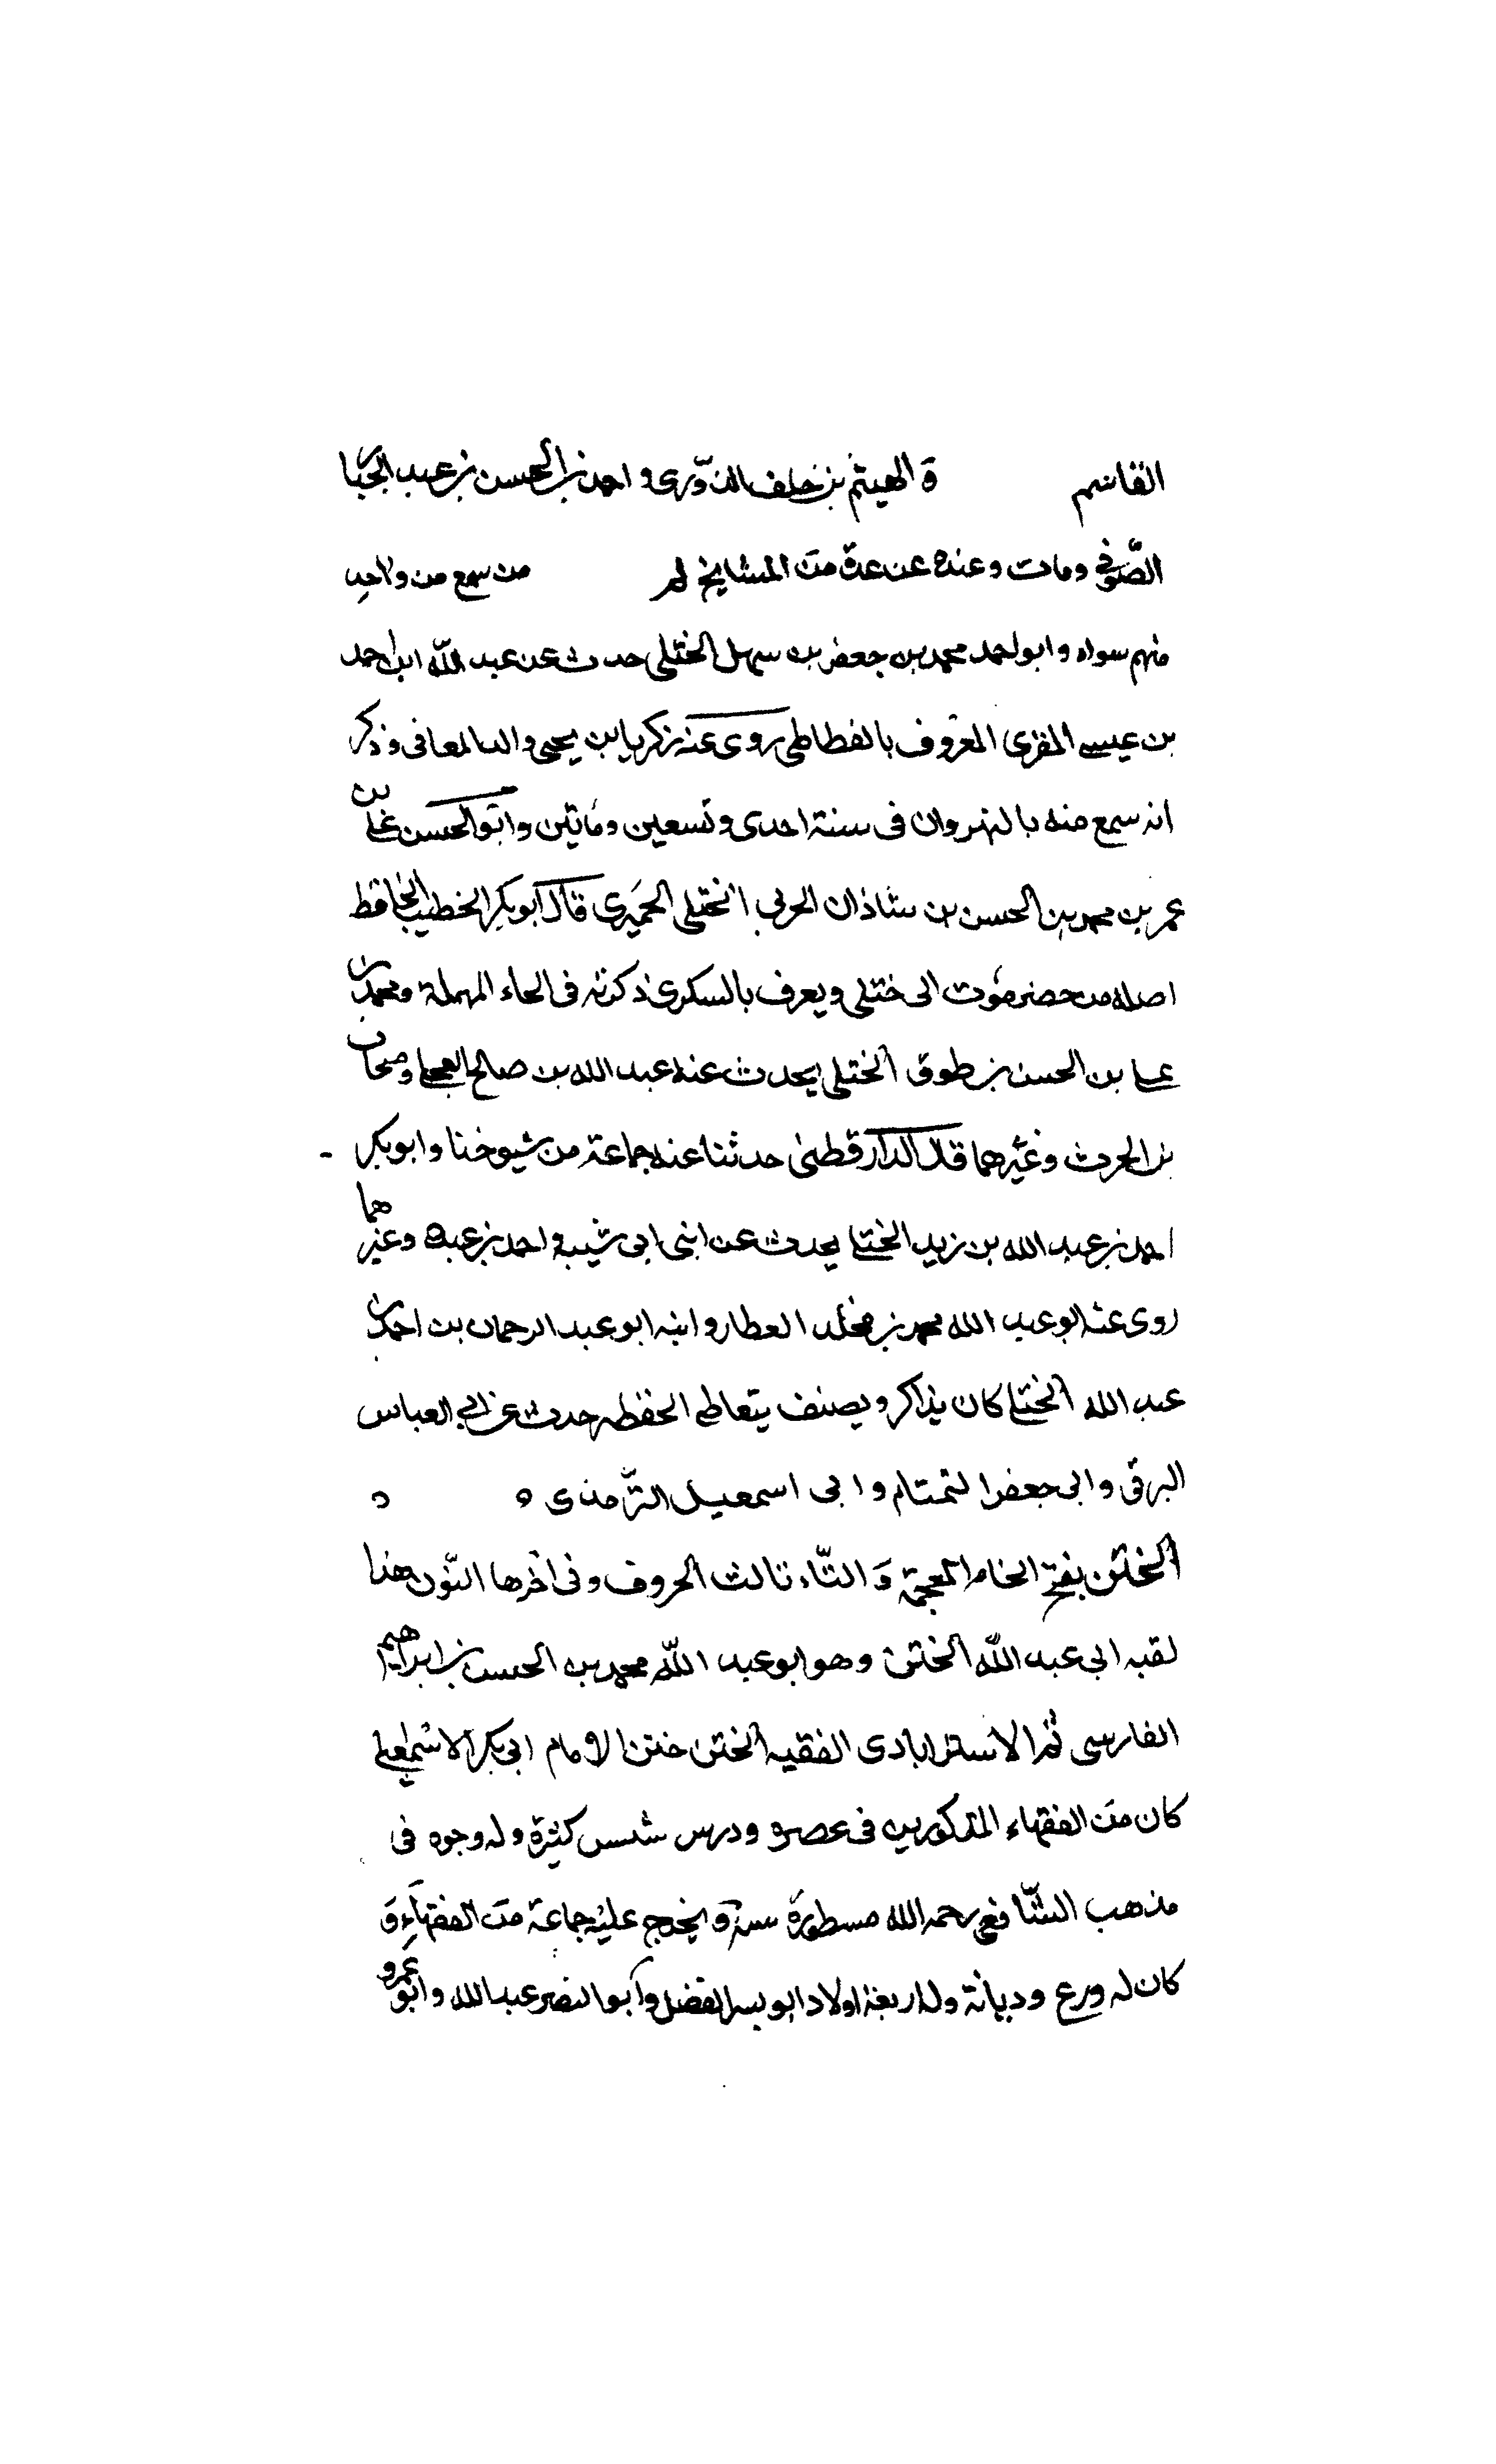 القاسم و الهيثم بن خلف الدّورى و احمد بن الحسن بن عبد الجبار
الصّوفى ومات وعنده عن عدة من المشايخ لم من سمع من واحد
منهم سواه وابو احمد محمد بن جعفر بن سهل الختلى حدث عن عبد اللّه ابن احمد
بن عيسى المقرى المعروف بالفطاطى روى عنه زكريا بن يحيى والد المعافى وذكر
انه سمع منه بالنهروان فى سنة احدى وتسعين ومائتين وابو الحسن على بن
عمر بن محمد بن الحسن بن شاذان الحربى الختلى الحميرى قال ابو بكر الخطيب الحافظ
اصله من حضرموت الى ختلى ويعرف بالسكرى ذكرته فى الحاء المهملة ومحمد بن
على بن الحسن بن طوق الختلى يحدث عنه عبد الله بن صالح العجلى
بن الحرث وغيرهما قال الدارقطنى حدثنا عنه جماعة من شيوخنا وابو بكر
احمد بن عبد الله بن زيد الختلى يحدث عن ابنى ابى شيبه واحمد بن عبدة وغيرهما
روى عنه ابو عبد الله محمد بن مخلد العطار وابنه ابو عبد الرحمان بن احمد بن
عبد الله الختلى كان يذاكر ويصنف يتعاطى الحفظ حدث عن ابى العباس
البرقى وابى جعفر التمتام وابى اسمعيل التّرمذى ه ه
الختن بفتح الخاء المعجمة و التّاء ثالث الحروف وفى آخرها النّون هذا
لقبه ابى عبد اللّه الختن وهو ابو عبد اللّه محمد بن الحسن بن ابراهيم
الفارسى ثم الاسترابادى الفقيه الختن ختن الامام ابى بكر الاسمعيلى
كان من الفقهاء المذكورين فى عصره ودرس سنين كثيرة وله وجوه فى
مذهب الشّافعى رحمه الله مسطورة ويخرج عليه جماعة من الفقهاء و
كان له ورع وديانة وله اربعة اولاد ابو بسر الفضل وابو النضر عبد الله وابو عمرو